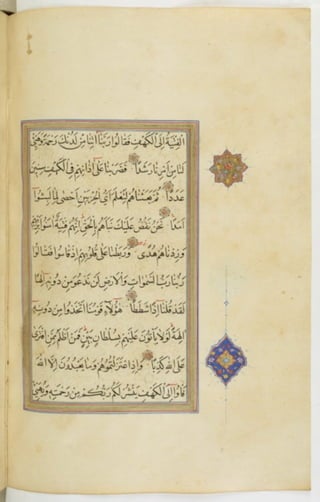 الفتية إلى الكهف فقالوا ربنا آتنا من لدنك رحمة وهيئ
لنا من أمرنا رشدا فضربنا على آذانهم في الكهف سنين
عددا ثم بعثناهم لنعلم أي الحزبين أحصى لما لبثوا
أمدا نحن نقص عليك نبأهم بالحق إنهم فتية آمنوا بربهم
وزدناهم هدى وربطنا على قلوبهم إذ قاموا فقالوا
ربنا رب السموات والأرض لن ندعو من دونه إلها
لقد قلنا إذا شططا هؤلاء قومنا اتخذوا من دونه
آلهة لولا يأتون عليهم بسلطان بين فمن أظلم ممن افترى
على الله كذبا وإذ اعتزلتموهم وما يعبدون إلا الله
فأووا إلى الكهف ينشر لكم ربكم من رحمته ويهيئ